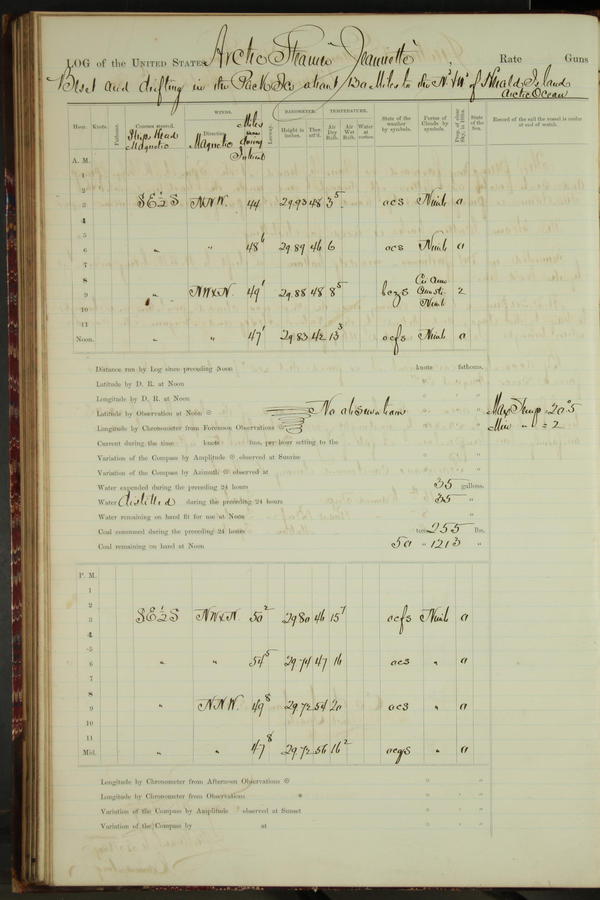 LOG of the UNITED STATES Arctic Steamer Jeannette, Rate Guns
Beset and drifting in the Pack Ice about miles to the N'd & W'd of Herald Island
Arctic Ocean
WINDS. BAROMETER. TEMPERATURE.
Hour. Knots. Fathoms. Courses steered. Direction. Leeway. Height in inches. Ther. att'd. Air Dry Bulb. Air Wet Bulb. Water at surface. State of the weather by symbols. Forms of Clouds by symbols. Prop. of clear sky, in 10ths. State of the Sea. Record of the sail the vessel is under at end of watch.
Ships Head Magnetic Magnetic Miles
A. M.
1
2
3 SE½S NNW. 44 29.93 48 3 5 ocs Nimb 0
4
5
6 " " 48 6 29 89 46 6 ocs Nimb 0
7
8 Cir Cum
9 NW×N. 49 1 29.88 48 8 5 bczs Nimb 2
10
11
Noon. " " 47 1 29 83 42 13 3 ocfs Nimb 0
Distance run by Log since preceding Noon knots fathoms.
Latitude by D. R. at Noon " "
Longitude by D. R. at Noon " "
Latitude by Observation at Noon No observations Max Temp = 20°5
Longitude by Chronometer from Forenoon Observations Min " " = 2
Current during the time knots fms. per hour setting to the
Variation of the Compass by Amplitude observed at Sunrise
Variation of the Compass by Azimuth observed at
Water expended during the preceding 24 hours 35 gallons.
Water distilled during the preceding 24 hours 35 "
Water remaining on hand fit for use at Noon "
Coal consumed during the preceding 24 hours tons 255 lbs.
Coal remaining on hand at Noon 50 " 1213 "
P. M.
1
2
3 SE½S NW×N. 50 2 29 80 46 15 7 ocfs Nimb 0
4
5
6 " " 54 5 29 74 47 16 ocs " 0
7
8
9 " NNW. 49 8 29 72 54 20 ocs " 0
10
11
Mid. " " 47 8 29 72 56 16 2 " 0
Longitude by Chronometer from Afternoon Observations " "
Longitude by Chronometer from Observations " "
Variation of the Compass by Amplitude observed at Sunset " "
Variation of the Compass by at " "